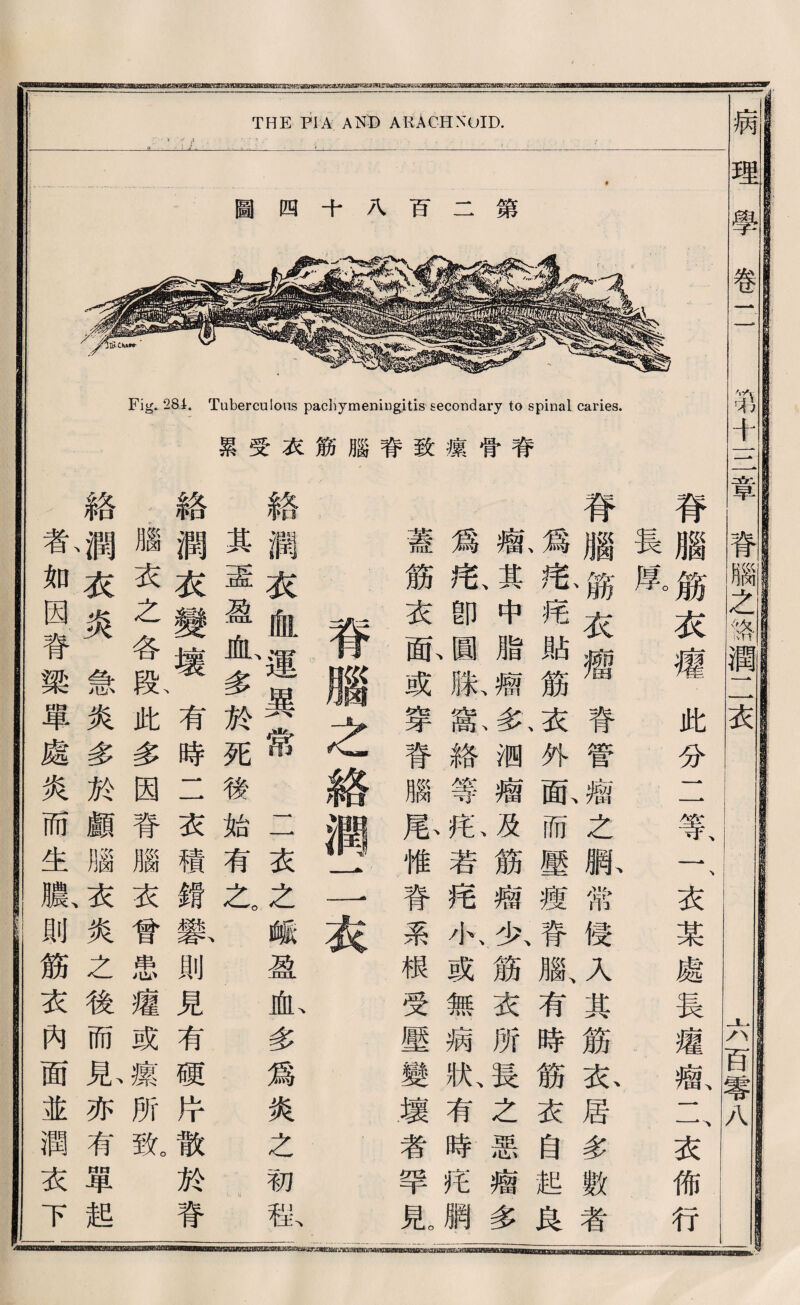 THE PIA AND ARACHNOID.
病理學 卷二 第十三章 脊腦之絡潤二衣 六百零八
第二百八十四圖
Fig. 284. Tuberculous pachymeningitis secondary to spinal caries.
脊骨瘰致脊腦筋衣受累
脊腦筋衣癯 此分二等、一、衣某處長癯瘤、二、衣佈行
長厚。
脊腦筋衣瘤 脊管瘤之膶、常侵入其筋衣、居多數者
爲㾌、㾌貼筋衣外面、而壓瘦脊腦、有時筋衣自起良
瘤、其中脂瘤多、泗瘤及筋瘤少、筋衣所長之惡瘤多
爲㾌、卽圓䏭、窩、絡等㾌、若㾌小、或無病狀、有時㾌膶
蓋筋衣面、或穿脊腦尾、惟脊系根受壓變壞者罕見。
脊腦之絡潤二衣
絡潤衣血運異常 二衣之衇盈血、多爲炎之初程、
其盈血、多於死後始有之。
絡潤衣變壞 有時二衣積鎝礬、則見有硬片散於脊
腦衣之各段、此多因脊腦衣曾患癯或瘰所致。
絡潤衣炎 急炎多於顱腦衣炎之後而見、亦有單起
者、如因脊梁單處炎而生膿、則筋衣內面並潤衣下